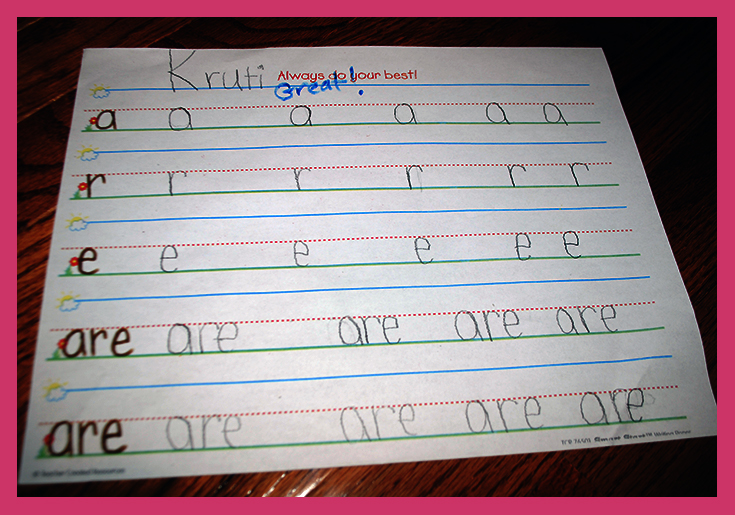 Kruti Always do your best!
Great!
a a a a a a
r r r r r r
e e e e e e
are are are are are
are are are are are
© Teacher Created Resources Smart Start™ Writing Paper